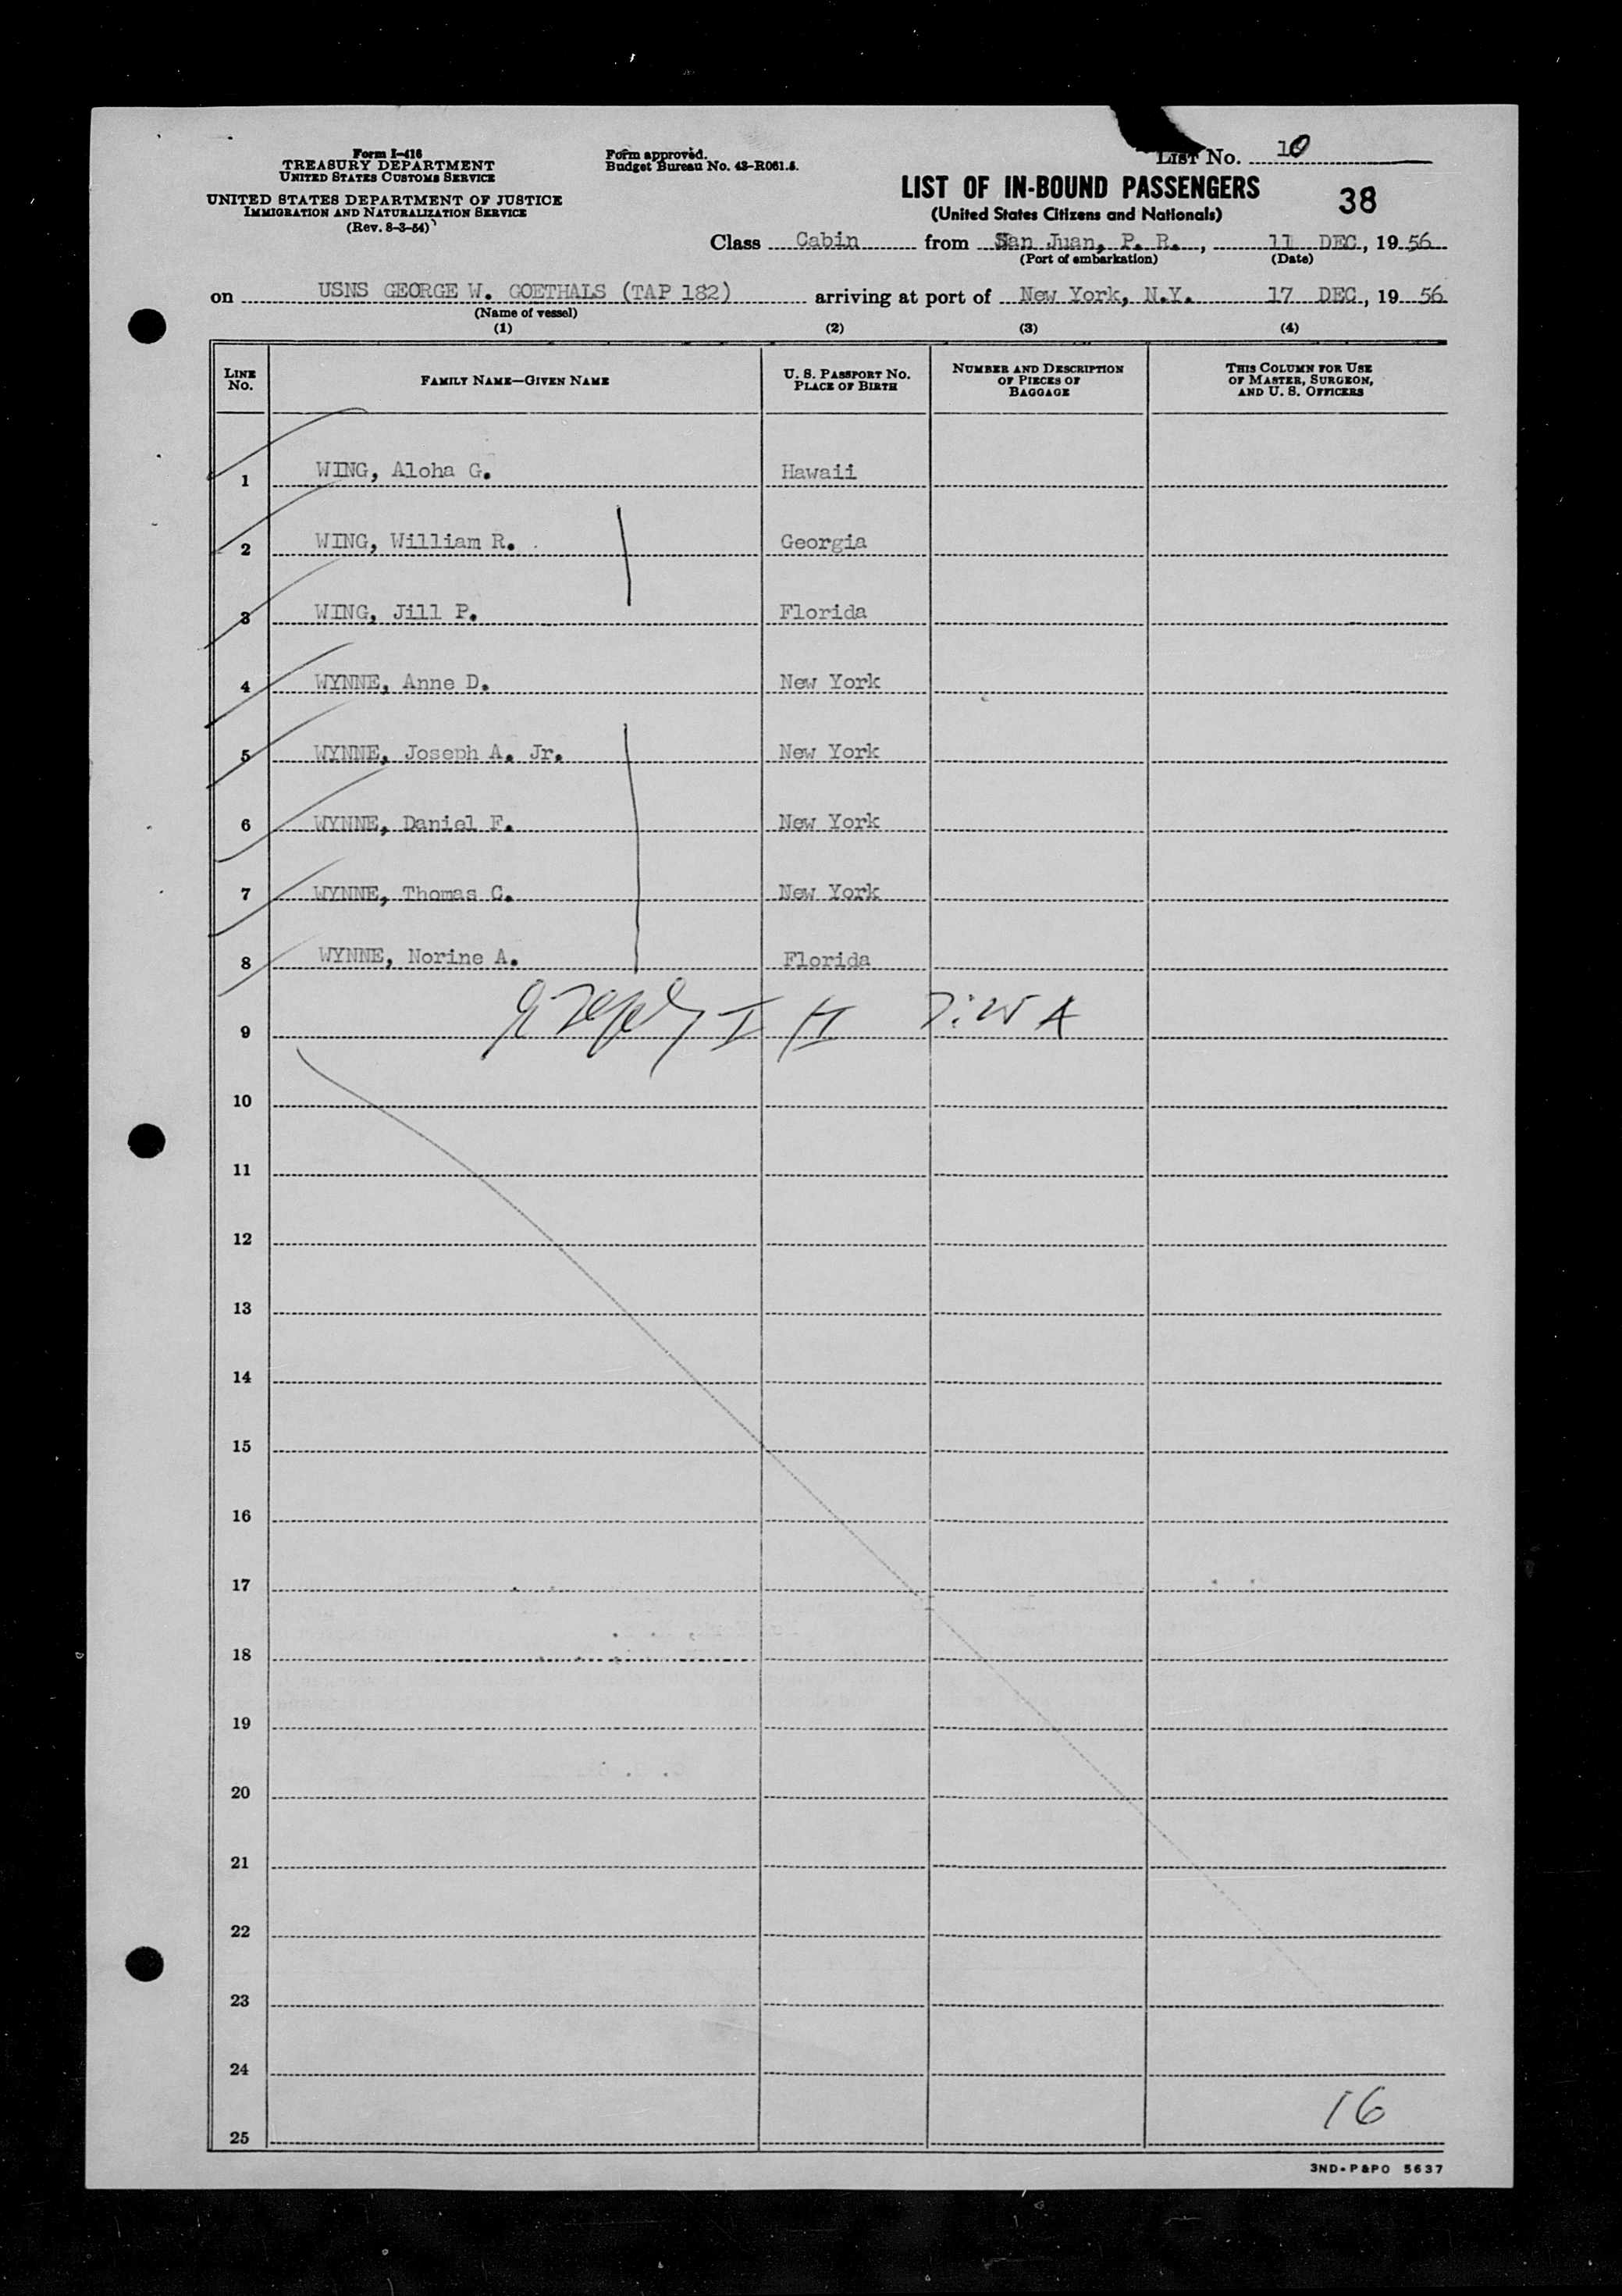 Form I-416
TREASURY DEPARTMENT
UNITED STATES CUSTOMS SERVICE
UNITED STATES DEPARTMENT OF JUSTICE
IMMIGRATION AND NATURALIZATION SERVICE
(Rev. 8-3-54)
Form approved.
Budget Bureau No. 43-R061.5.
LIST No. 10
LIST OF IN-BOUND PASSENGERS
(United States Citizens and Nationals)
38
Class Cabin from San Juan, P. R., 11 DEC, 1956
(Port of embarkation) (Date)
on USNS GEORGE W. GOETHALS (TAP 182) arriving at port of New York, N.Y. 17 DEC, 1956
(Name of vessel)
(1) (2) (3) (4)
LINE No. FAMILY NAME—GIVEN NAME U. S. PASSPORT No. PLACE OF BIRTH NUMBER AND DESCRIPTION OF PIECES OF BAGGAGE THIS COLUMN FOR USE OF MASTER, SURGEON, AND U. S. OFFICERS
1 WING, Aloha G. Hawaii
2 WING, William R. Georgia
3 WING, Jill P. Florida
4 WYNNE, Anne D. New York
5 WYNNE, Joseph A. Jr. New York
6 WYNNE, Daniel F. New York
7 WYNNE, Thomas C. New York
8 WYNNE, Norine A. Florida
9
10
11
12
13
14
15
16
17
18
19
20
21
22
23
24
16
25
3ND-P&PO 5637